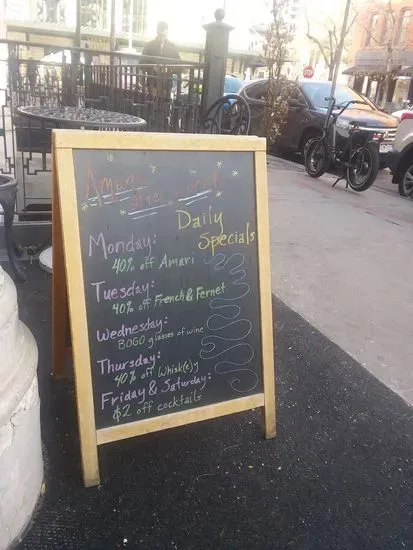 Daily
Specials
Monday:
40% off Amari
Tuesday:
40% off French & Fernet
Wednesday:
BOGO glasses of wine
Thursday:
40% off Whisk(e)y
Friday & Saturday:
$2 off cocktails